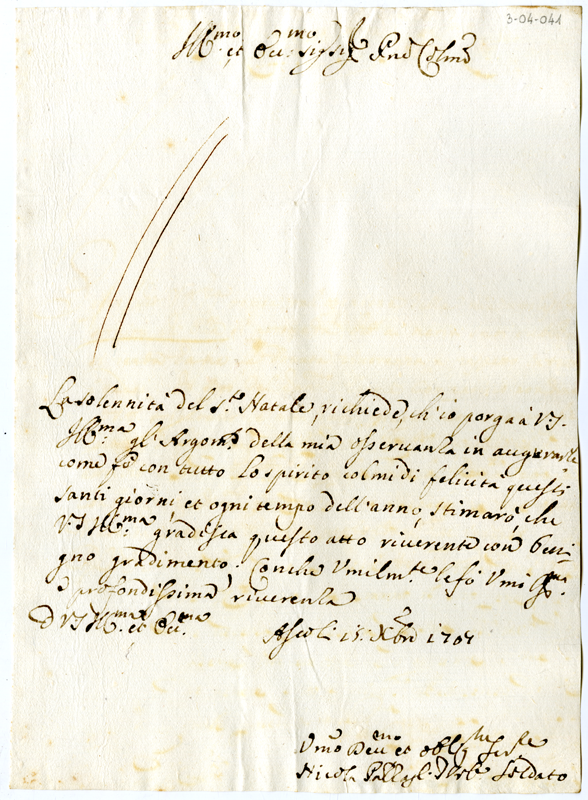 3-04-041
Ill.mo et Ecc.mo Sig.r Sig.r Pne Colmo
La solennità del S.to Natale, richiede, ch'io porga à VS
Ill.ma gl'Argom.ti della mia osservanza in augurarle
come fò con tutto lo spirito colmi di felicità questi
santi giorni et ogni tempo dell'anno, stimarò, che
VS Ill.ma gradisca questo atto riverente con beni-
gno gradimento. Conche Umilm.te le fò Umi
e profondissima riverenza
D VS Ill.ma et Ecc.ma
Ascoli 15 Xbre 1707
Umo Dev.mo et obl
Nicola Soldato